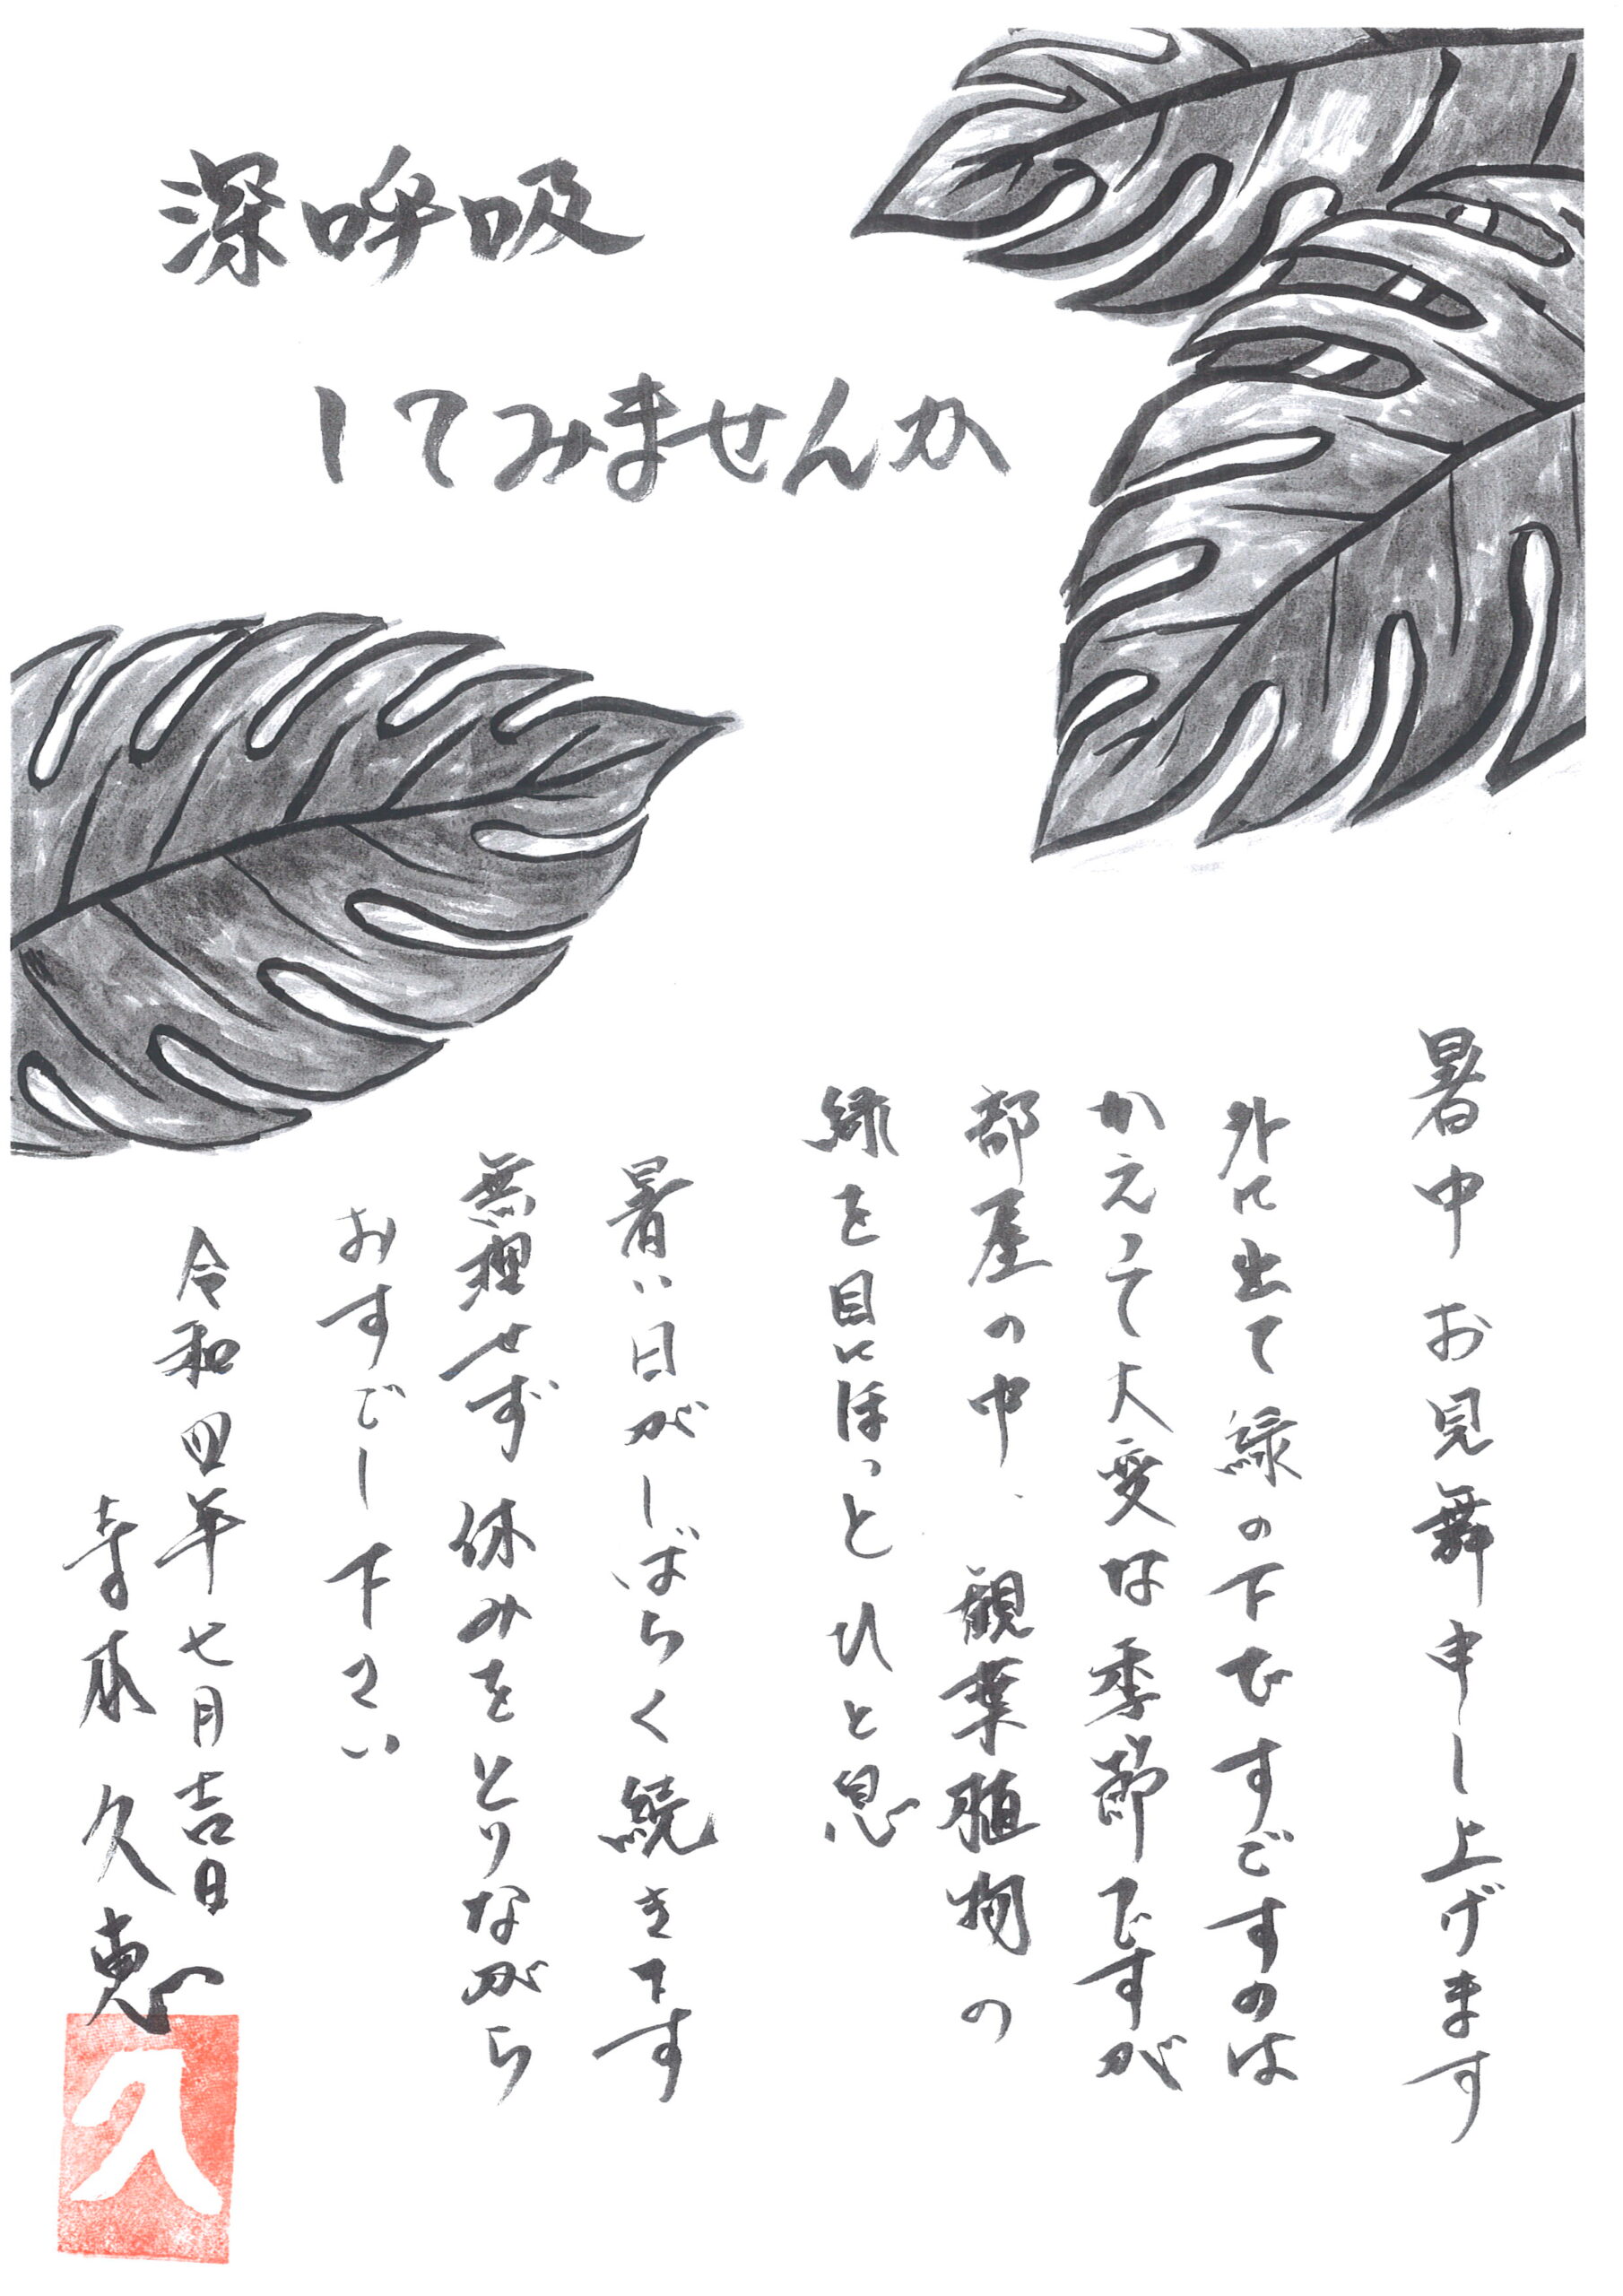 深呼吸
してみませんか
暑中お見舞申し上げます
外に出て緑の下ですごすのは
かえって大変な季節ですが
部屋の中、観葉植物の
緑を目にほっとひと息
暑い日がしばらく続きます
無理せず休みをとりながら
おすごし下さい
令和四年七月吉日
寺本久恵
久